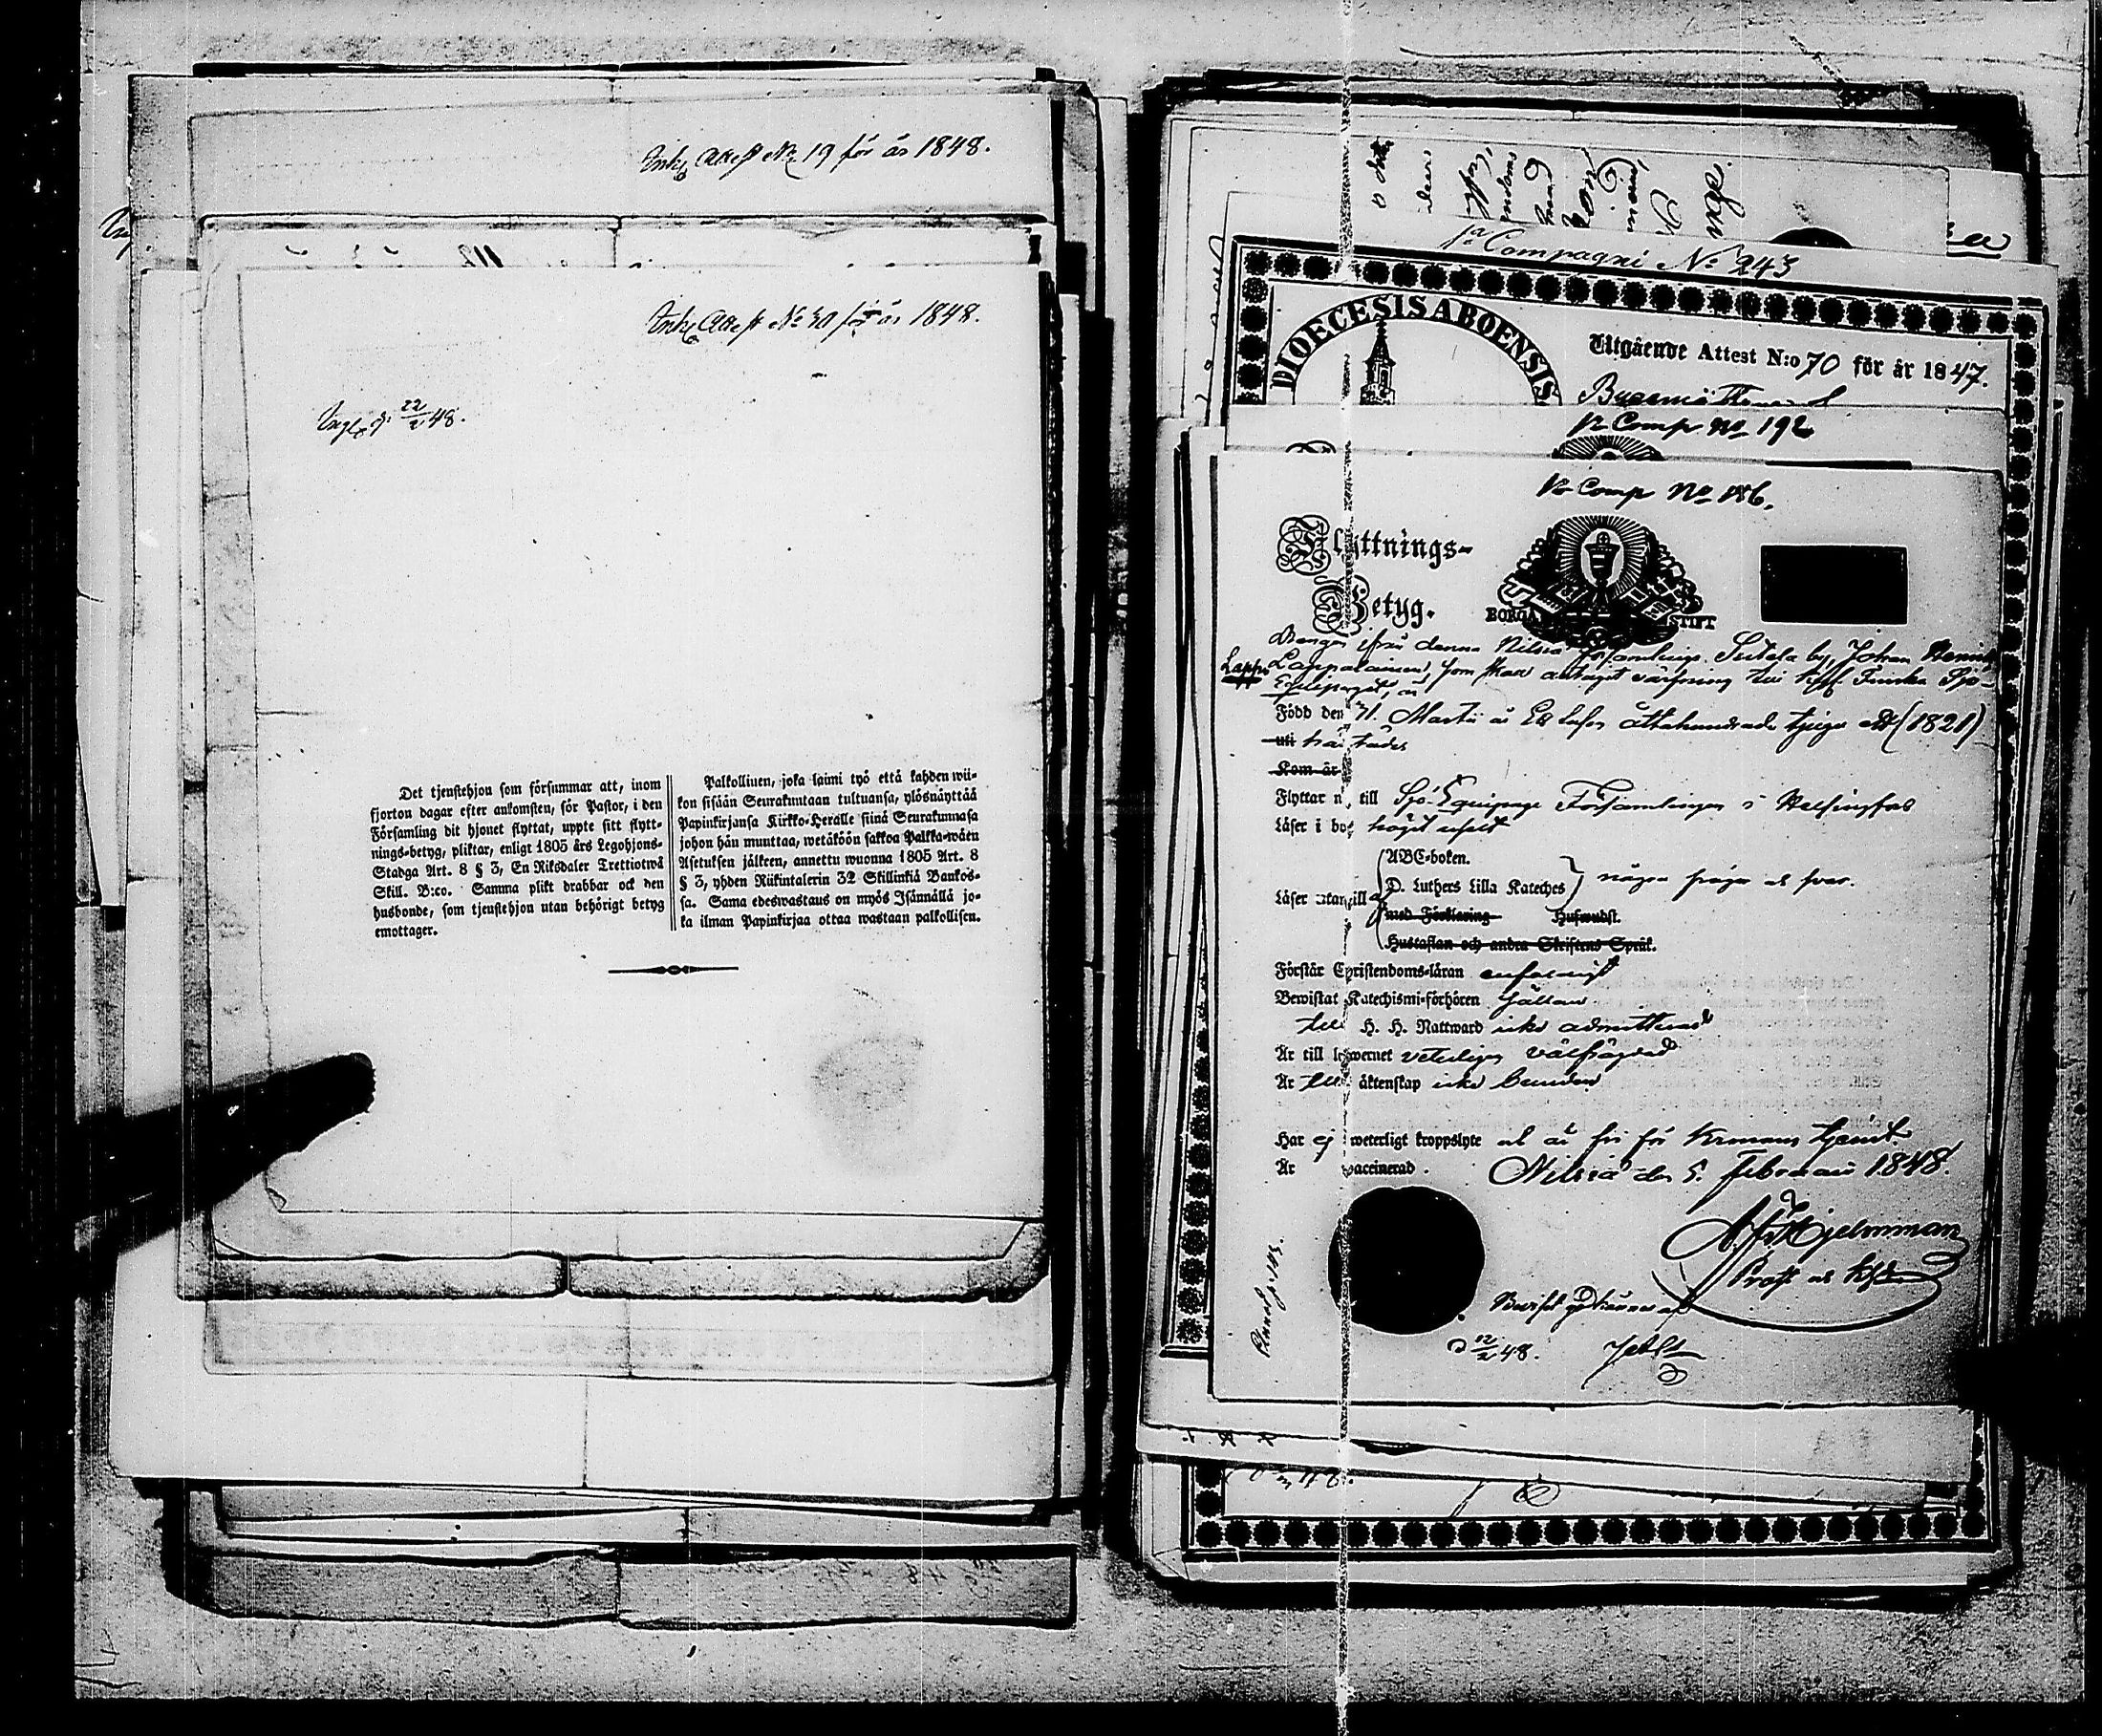 Ink. Attest No 19 för år 1848.
Ink. Attest No 30 för år 1848.
22/2 48.
Det tjenstehjon som försummar att, inom
fjorton dagar efter ankomsten, för Pastor, i den
Församling dit hjonet flyttat, uppte sitt flytt-
nings-betyg, pliktar, enligt 1805 års Legohjons-
Stadga Art. 8 § 3, En Riksdaler Trettiotwå
Skill. B:co. Samma plikt drabbar ock den
husbonde, som tjenstehjon utan behörigt betyg
emottager.
Palkollinen, joka laimi lyö että kahden wii-
kon sisään Seurakuntaan tultuansa, ylösnäyttää
Papinkirjansa Kirkko-Heralle siinä Seurakunnasa
johon hän muuttaa, wetäköön sakkoa Palkka-wäen
Asetuksen jälkeen, annettu wuonna 1805 Art. 8
§ 3, yhden Riikintalerin 32 Skillinkiä Bankos-
sa. Sama edeswastaus on myös Isännällä jo-
ka ilman Papinkirjaa ottaa wastaan palkollisen.
1a Compagni No 243
DIOECESIS ABOENSIS
Utgående Attest N:o 70 för år 1847.
Comp No 192
Comp No 186.
Flyttnings-
Betyg.
BORGÅ STIFT
Drengen ifrån denna Nilsiä församlings by, Johan Henrik
Lappalainen, som har antagit värfning vid Finska Sjö-
Equipaget, är
Född den 31. Martii år Ett tusen åttahundrade tjugu ett (1821)
uti härstädes
Kom är
Flyttar nu till Sjö-Equipage Församlingen i Helsingfors
Läser i bok högst uselt
ABC-boken.
D. Luthers Lilla Kateches
några frågor och svar.
Läser utantill
med Förklaring Huswudst.
Hustaflan och andra Skriftens Språk.
Förstår Christendoms-läran enfaldigt
Bewistat Katechismi-förhören sällan
till H. H. Nattward icke admitterad
Är till lefwernet veterligen välfrägdad
Är till äktenskap icke bunden
Har ej weterligt kroppslyte och är fri för Kronans tjenst.
Är vaccinerad.
Nilsiä den 5. Februarii 1848.
Hjelmman
Prost och Khde
12/2 48.